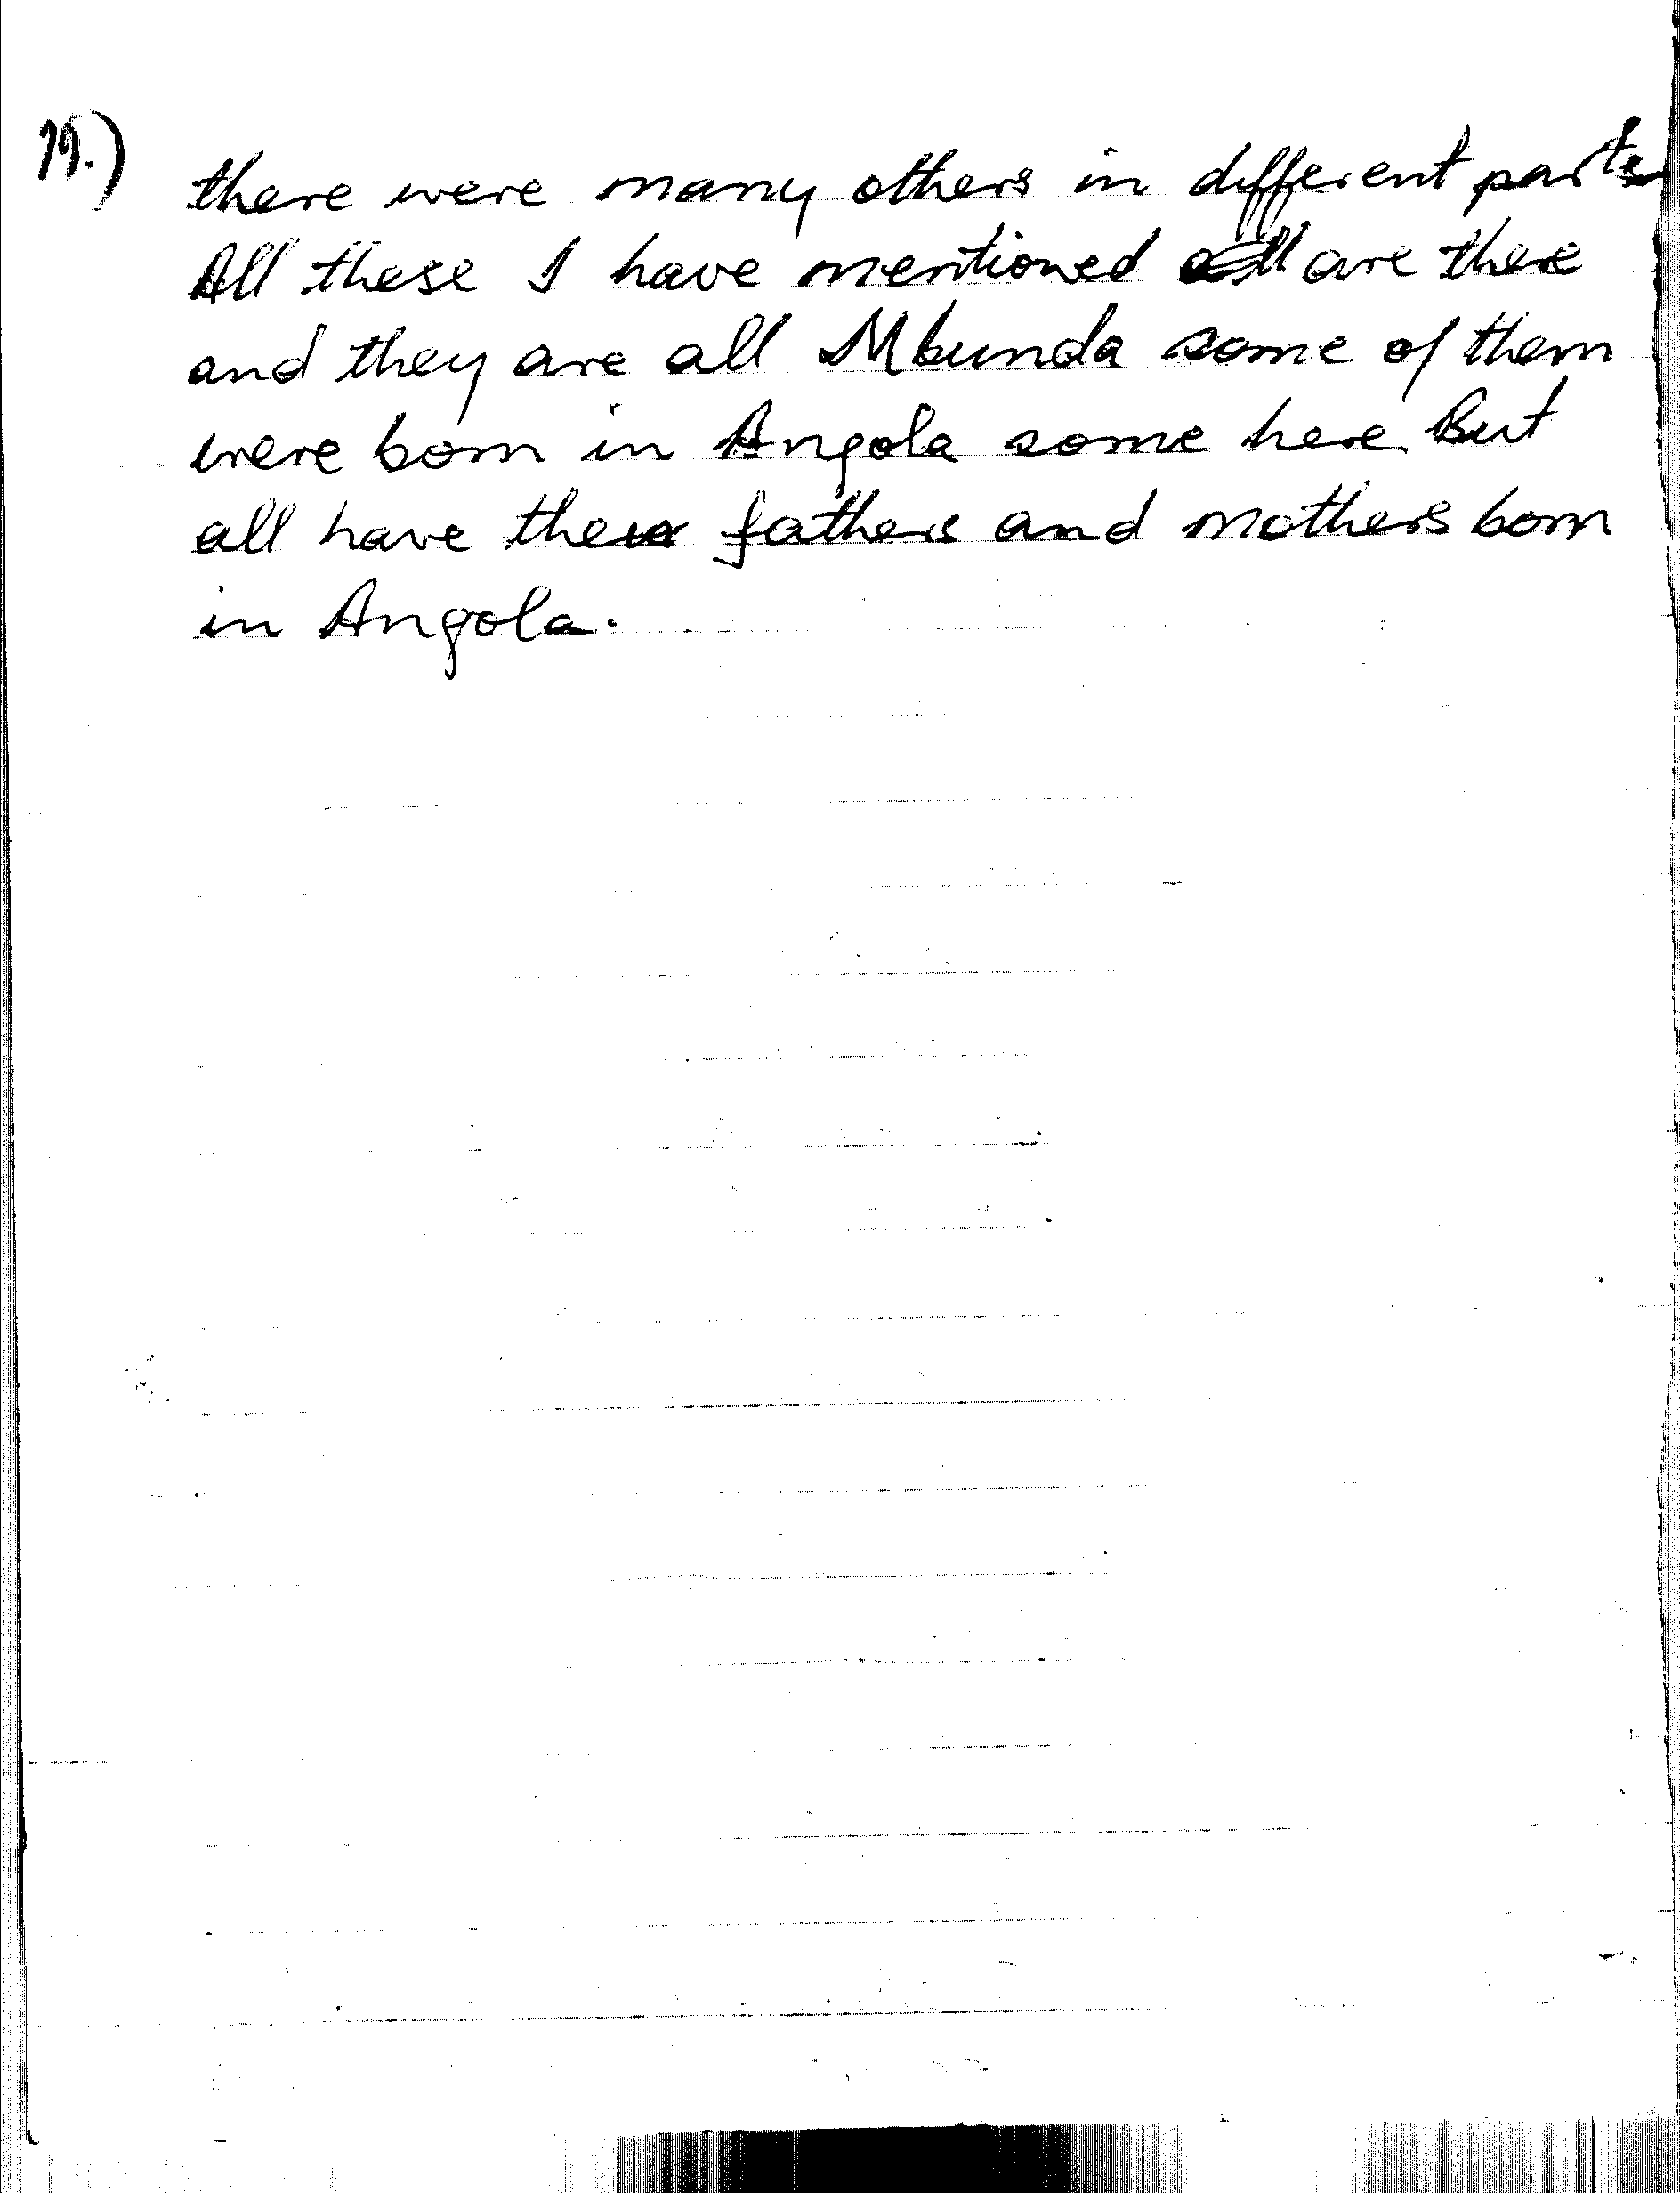 there were many others in different parts
All these I have mentioned all are there
and they are all Mbunda some of them
were born in Angola some here. But
all have their fathers and mothers born
in Angola.